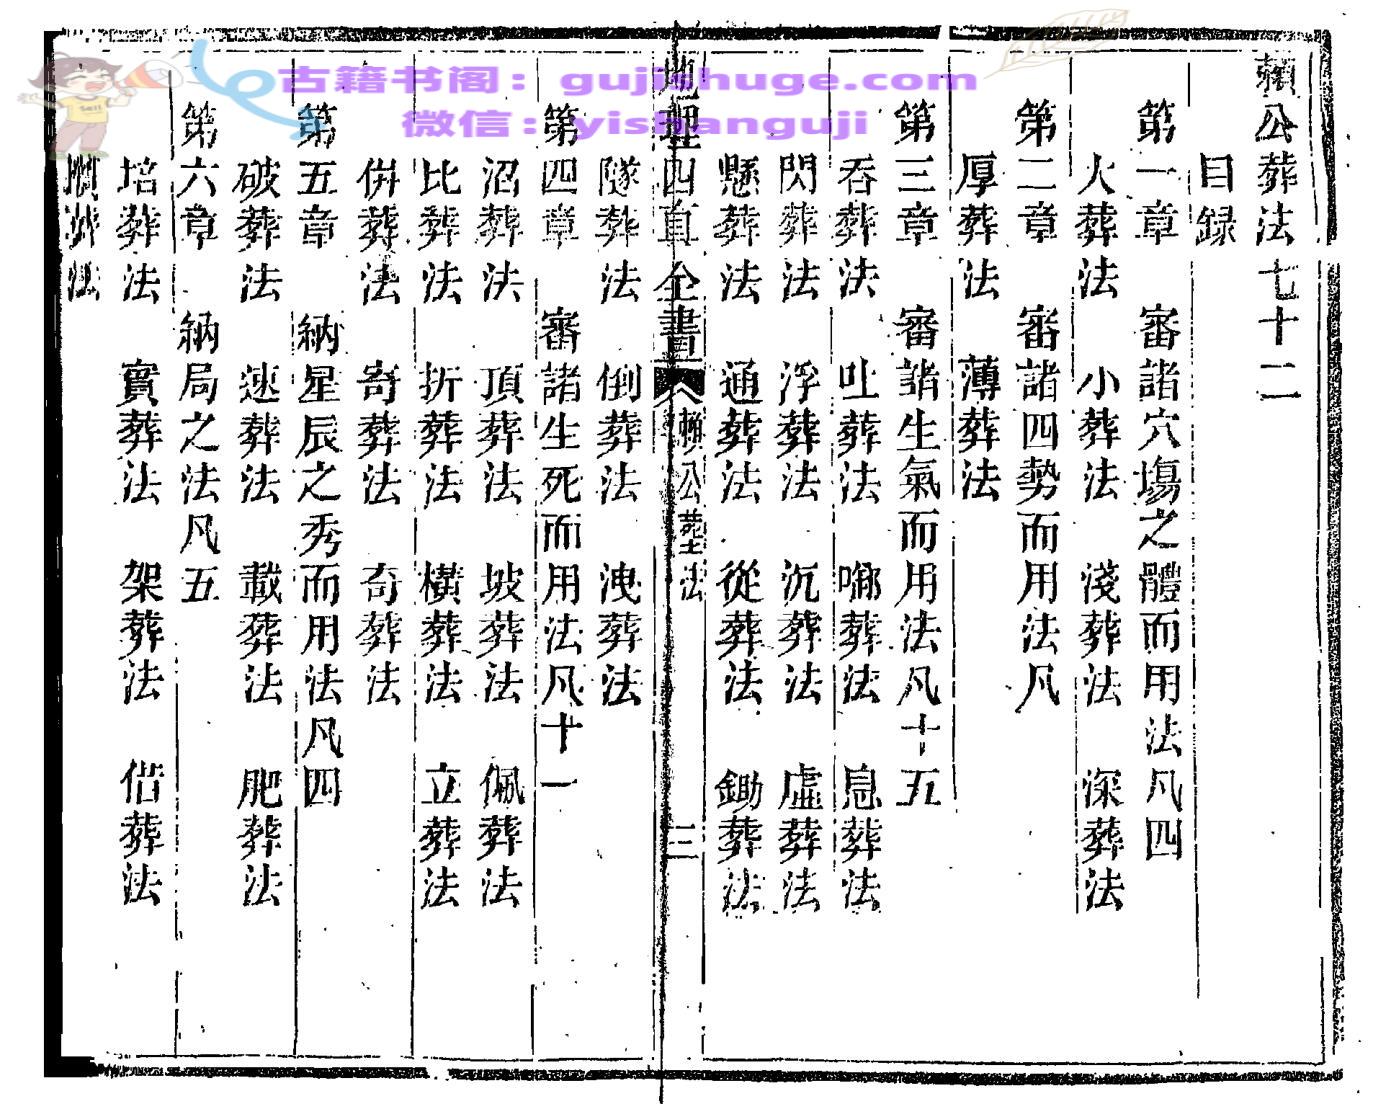 賴公葬法七十二
目録
第一章　審諸穴塲之體而用法凡四
大葬法　小葬法　淺葬法　深葬法
第二章　審諸四勢而用法凡
厚葬法　薄葬法
第三章　審諸生氣而用法凡十五
吞葬法　吐葬法　葬法　息葬法
閃葬法　浮葬法　沉葬法　虛葬法
懸葬法　通葬法　從葬法　鋤葬法
地理四直全書　賴公塟法　三
隧葬法　倒葬法　洩葬法
第四章　審諸生死而用法凡十一
沼葬法　頂葬法　坡葬法　佩葬法
比葬法　折葬法　橫葬法　立葬法
併葬法　寄葬法　奇葬法
第五章　納星辰之秀而用法凡四
破葬法　速葬法　載葬法　肥葬法
第六章　納局之法凡五
培葬法　實葬法　架葬法　偕葬法
葬法
古籍书阁：gujishuge.com
微信：yishanguji